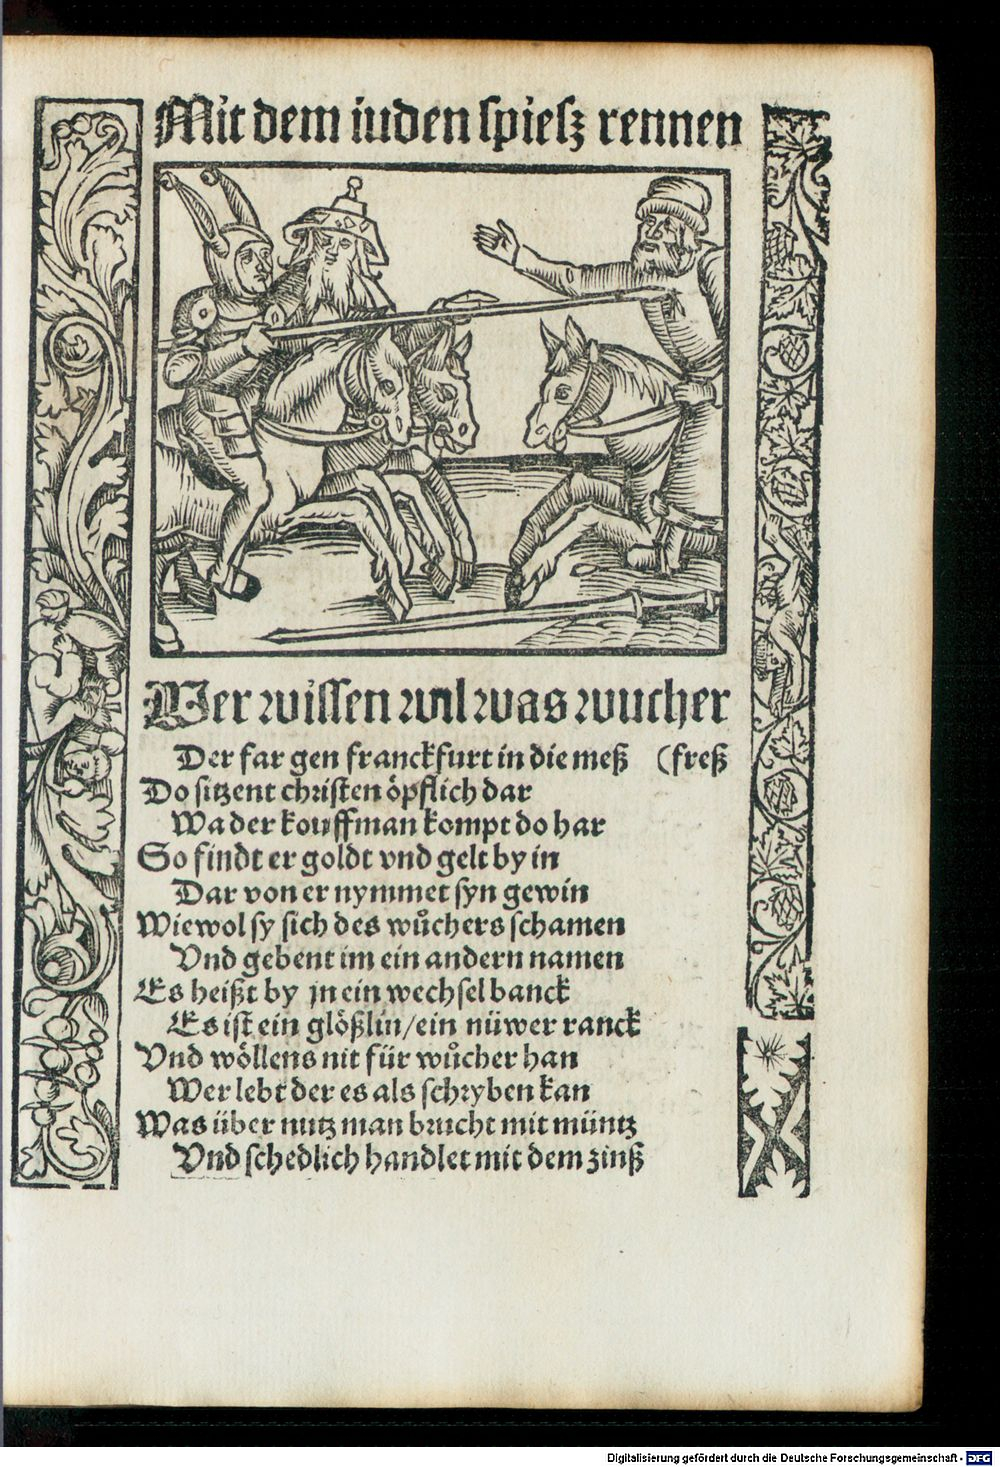 Mit dem iuden spiesz rennen
Wer wissen wil was wucher
Der far gen franckfurt in die meß (freß
Do sitzent christen öpflich dar
Wa der kouffman kompt do har
So findt er goldt vnd gelt by in
Dar von er nymmet syn gewin
Wiewol sy sich des wůchers schamen
Vnd gebent im ein andern namen
Es heißt by jn ein wechsel banck
Es ist ein glößlin/ein nüwer ranck
Vnd wöllens nit für wůcher han
Wer lebt der es als schryben kan
Was über nutz man brucht mit müntz
Vnd schedlich handlet mit dem zinß
Digitalisierung gefördert durch die Deutsche Forschungsgemeinschaft - DFG